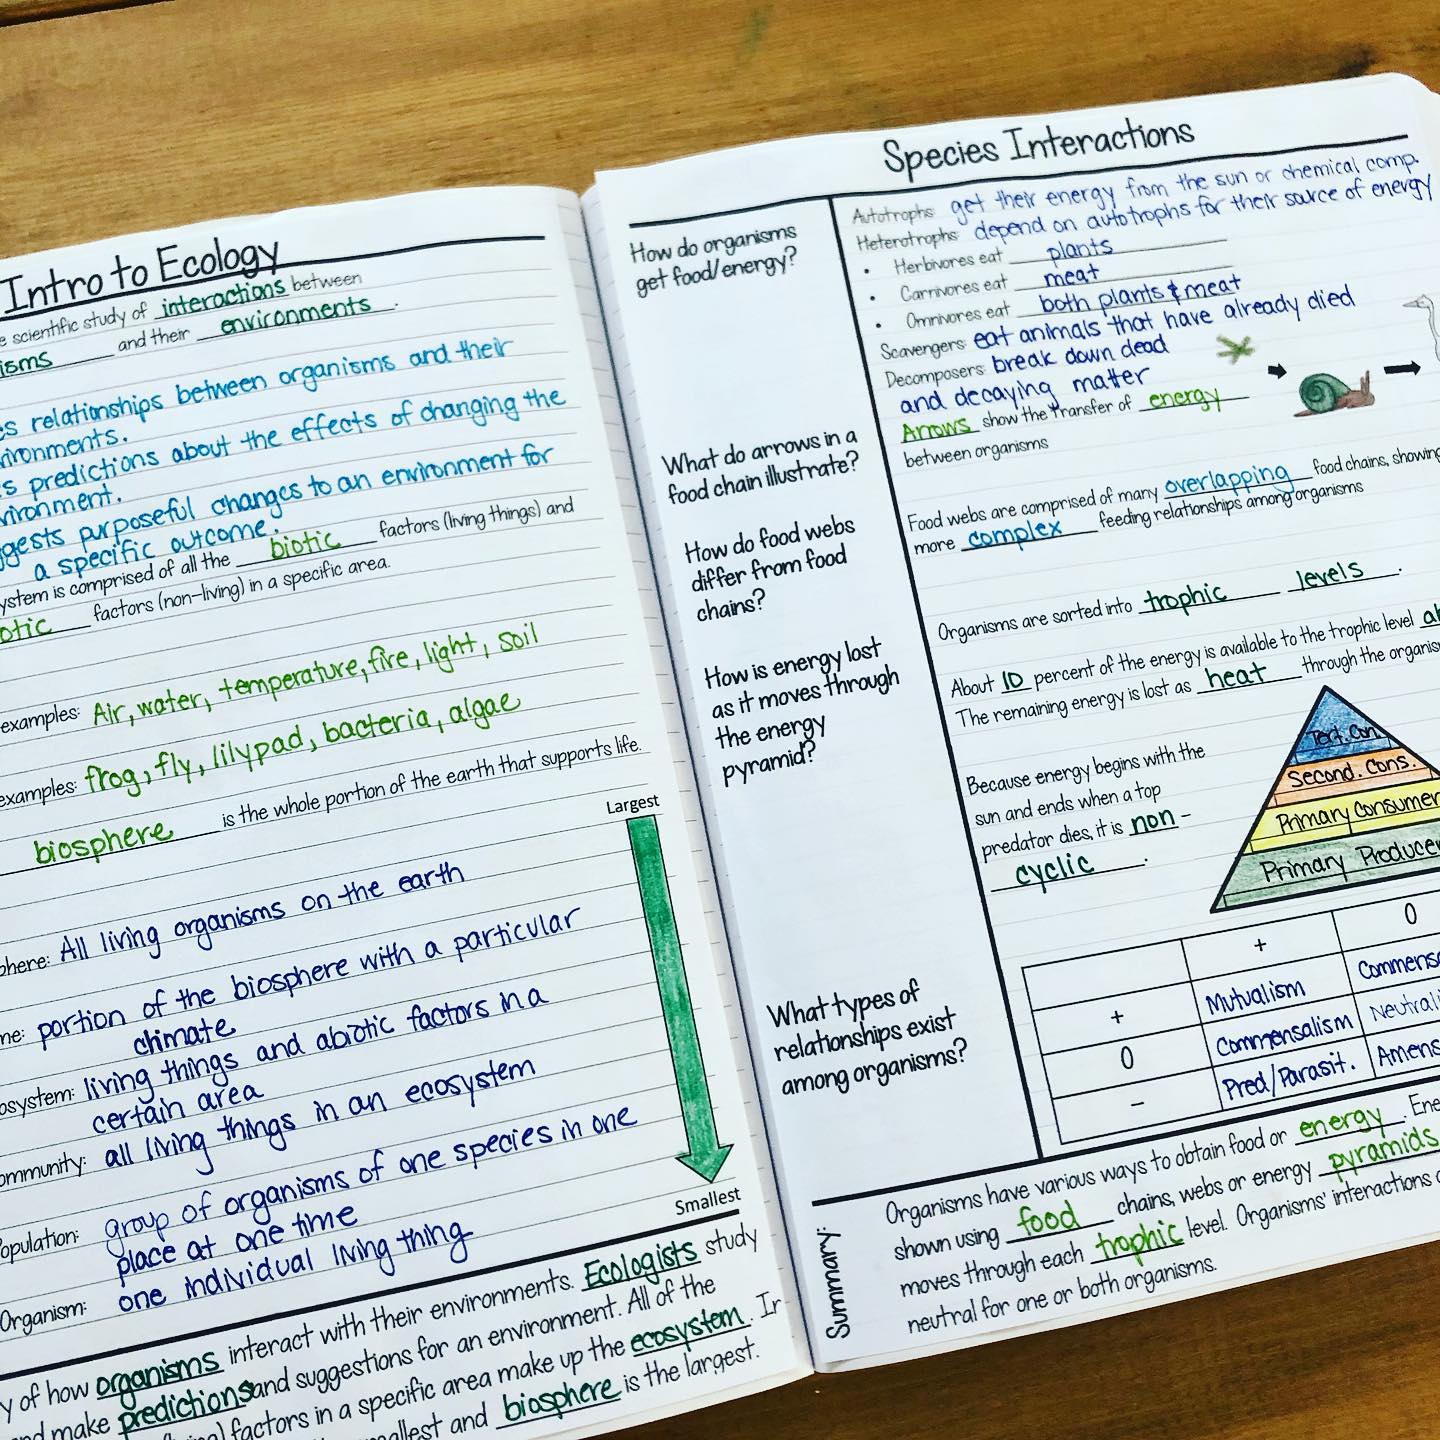 Intro to Ecology
e scientific study of interactions between
isms and their environments.
es relationships between organisms and their
vironments.
s predictions about the effects of changing the
vironment.
ggests purposeful changes to an environment for
a specific outcome.
ystem is comprised of all the biotic factors (living things) and
otic factors (non-living) in a specific area.
examples: Air, water, temperature, fire, light, soil
examples: frog, fly, lilypad, bacteria, algae
biosphere is the whole portion of the earth that supports life.
Largest
phere: All living organisms on the earth
me: portion of the biosphere with a particular
climate
osystem: living things and abiotic factors in a
certain area
ommunity: all living things in an ecosystem
opulation: group of organisms of one species in one
place at one time
Organism: one individual living thing
Smallest
y of how organisms interact with their environments. Ecologists study
nd make predictions and suggestions for an environment. All of the
factors in a specific area make up the ecosystem. In
allest and biosphere is the largest.
Species Interactions
How do organisms
get food/energy?
Autotrophs: get their energy from the sun or chemical comp.
Heterotrophs: depend on autotrophs for their source of energy
• Herbivores eat plants
• Carnivores eat meat
• Omnivores eat both plants & meat
Scavengers: eat animals that have already died
Decomposers: break down dead
and decaying matter
What do arrows in a
food chain illustrate?
Arrows show the transfer of energy
between organisms
How do food webs
differ from food
chains?
Food webs are comprised of many overlapping food chains, showing
more complex feeding relationships among organisms
How is energy lost
as it moves through
the energy
pyramid?
Organisms are sorted into trophic levels.
About 10 percent of the energy is available to the trophic level ab
The remaining energy is lost as heat through the organis
Because energy begins with the
sun and ends when a top
predator dies, it is non-
cyclic.
Tert. Con.
Second. Cons.
Primary Consumer
Primary Produce
What types of
relationships exist
among organisms?
+ 0
+ Mutualism Commens
0 Commensalism Neutrali
− Pred/Parasit. Amens
Summary:
Organisms have various ways to obtain food or energy. Ene
shown using food chains, webs or energy pyramids
moves through each trophic level. Organisms' interactions
neutral for one or both organisms.